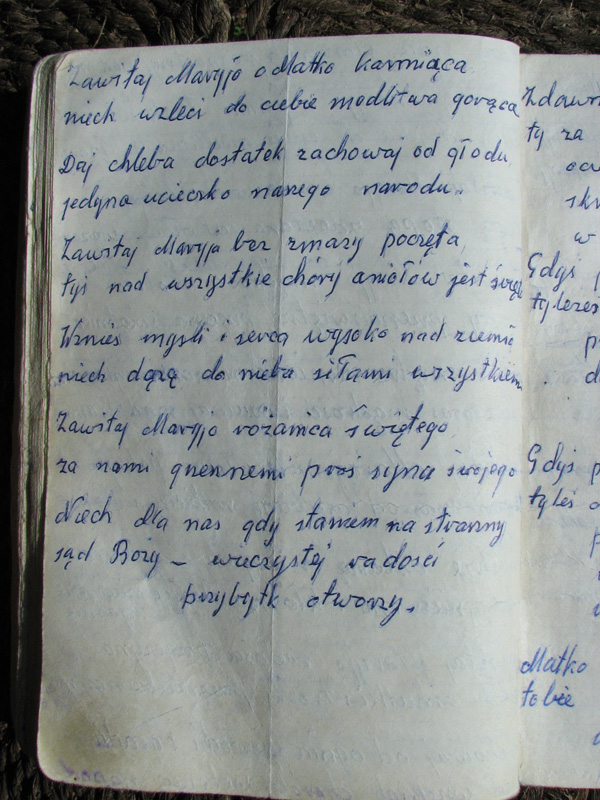 Zawitaj Maryjo o Matko karmiąca
niech wzleci do ciebie modlitwa gorąca
Daj chleba dostatek zachowaj od głodu,
jedyna ucieczko naszego narodu.
Zawitaj Maryja bez zmazy poczęta,
tyś nad wszystkie chóry aniołów jest
Wznieś myśli i serca wysoko nad ziemię
niech dążą do nieba siłami wszystkiemi
Zawitaj Maryjo różańca świętego
za nami grzesznemi proś syna swojego
Niech dla nas gdy staniem na straszny
sąd Boży – wieczystej radości
przybytk otworzy.
ty za
w
Gdyś
Gdyś
tyleś
Matko
tobie